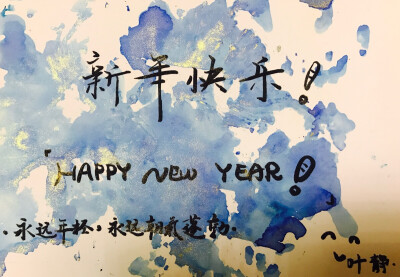 新年快乐!
HAPPY NEW YEAR!
、永远年轻,永远朝气蓬勃.
叶静.